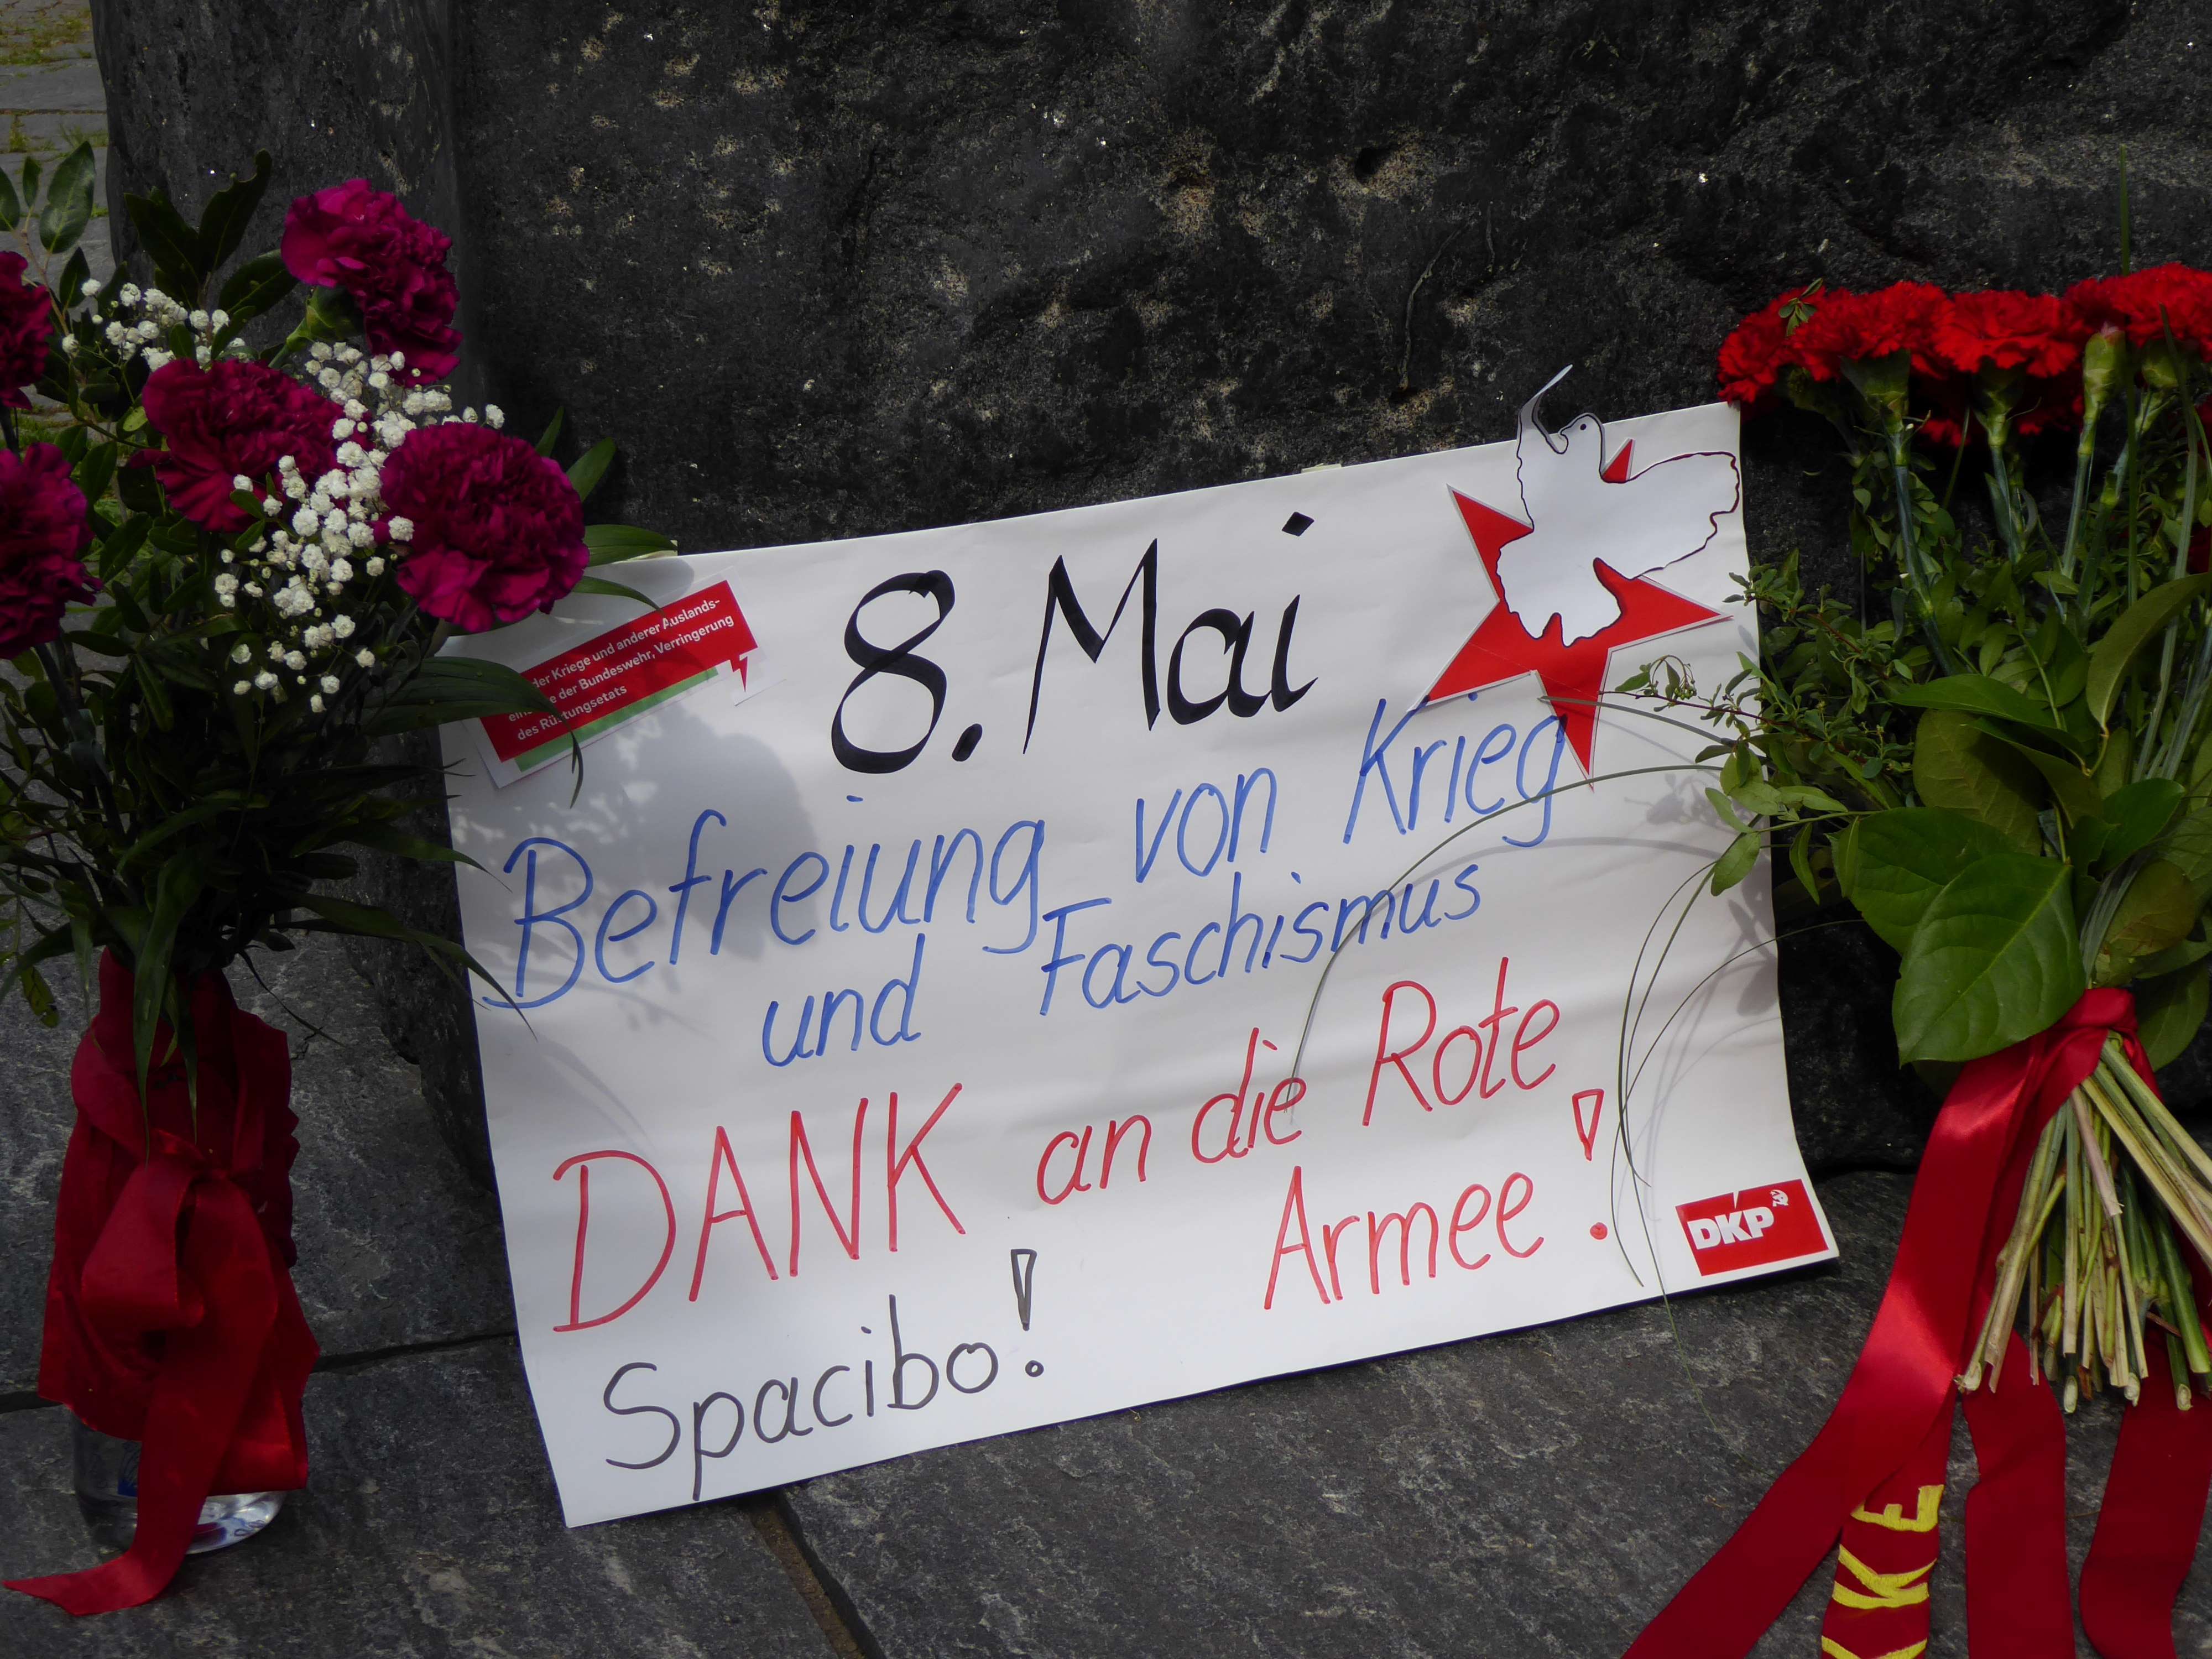 8. Mai
der Kriege und anderer Auslands-
der Bundeswehr, Verringerung
des Rüstungsetats
Befreiung von Krieg
und Faschismus
DANK an die Rote
Armee!
Spacibo!
DKP
KE